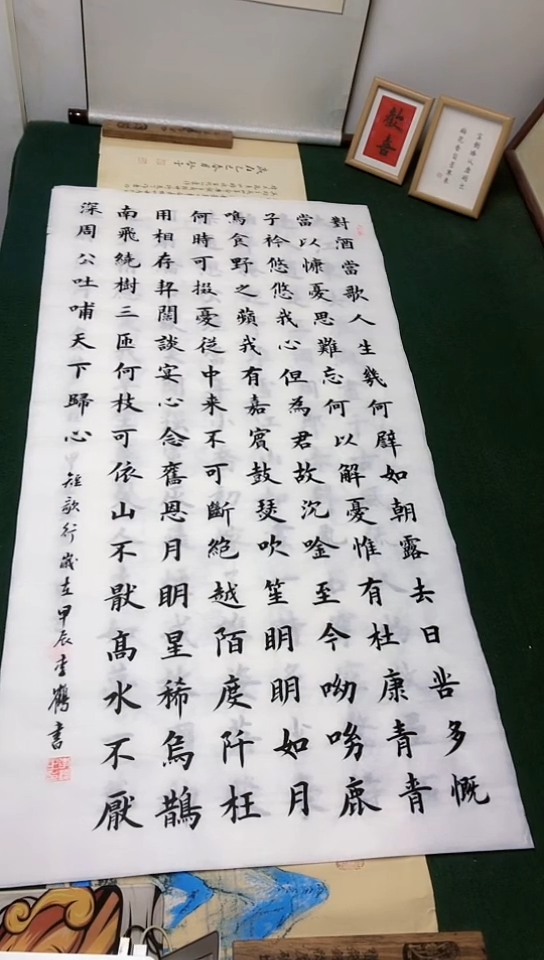 對酒當歌人生幾何譬如朝露去日苦多慨
當以慷憂思難忘何以解憂惟有杜康青青
子衿悠悠我心但為君故沉吟至今呦呦鹿
鳴食野之蘋我有嘉賓鼓瑟吹笙明明如月
何時可掇憂從中来不可斷絕越陌度阡枉
用相存契闊談宴心念舊恩月明星稀烏鵲
南飛繞樹三匝何枝可依山不厭高水不厭
深周公吐哺天下歸心
短歌行歲在甲辰李鶴書
歡喜